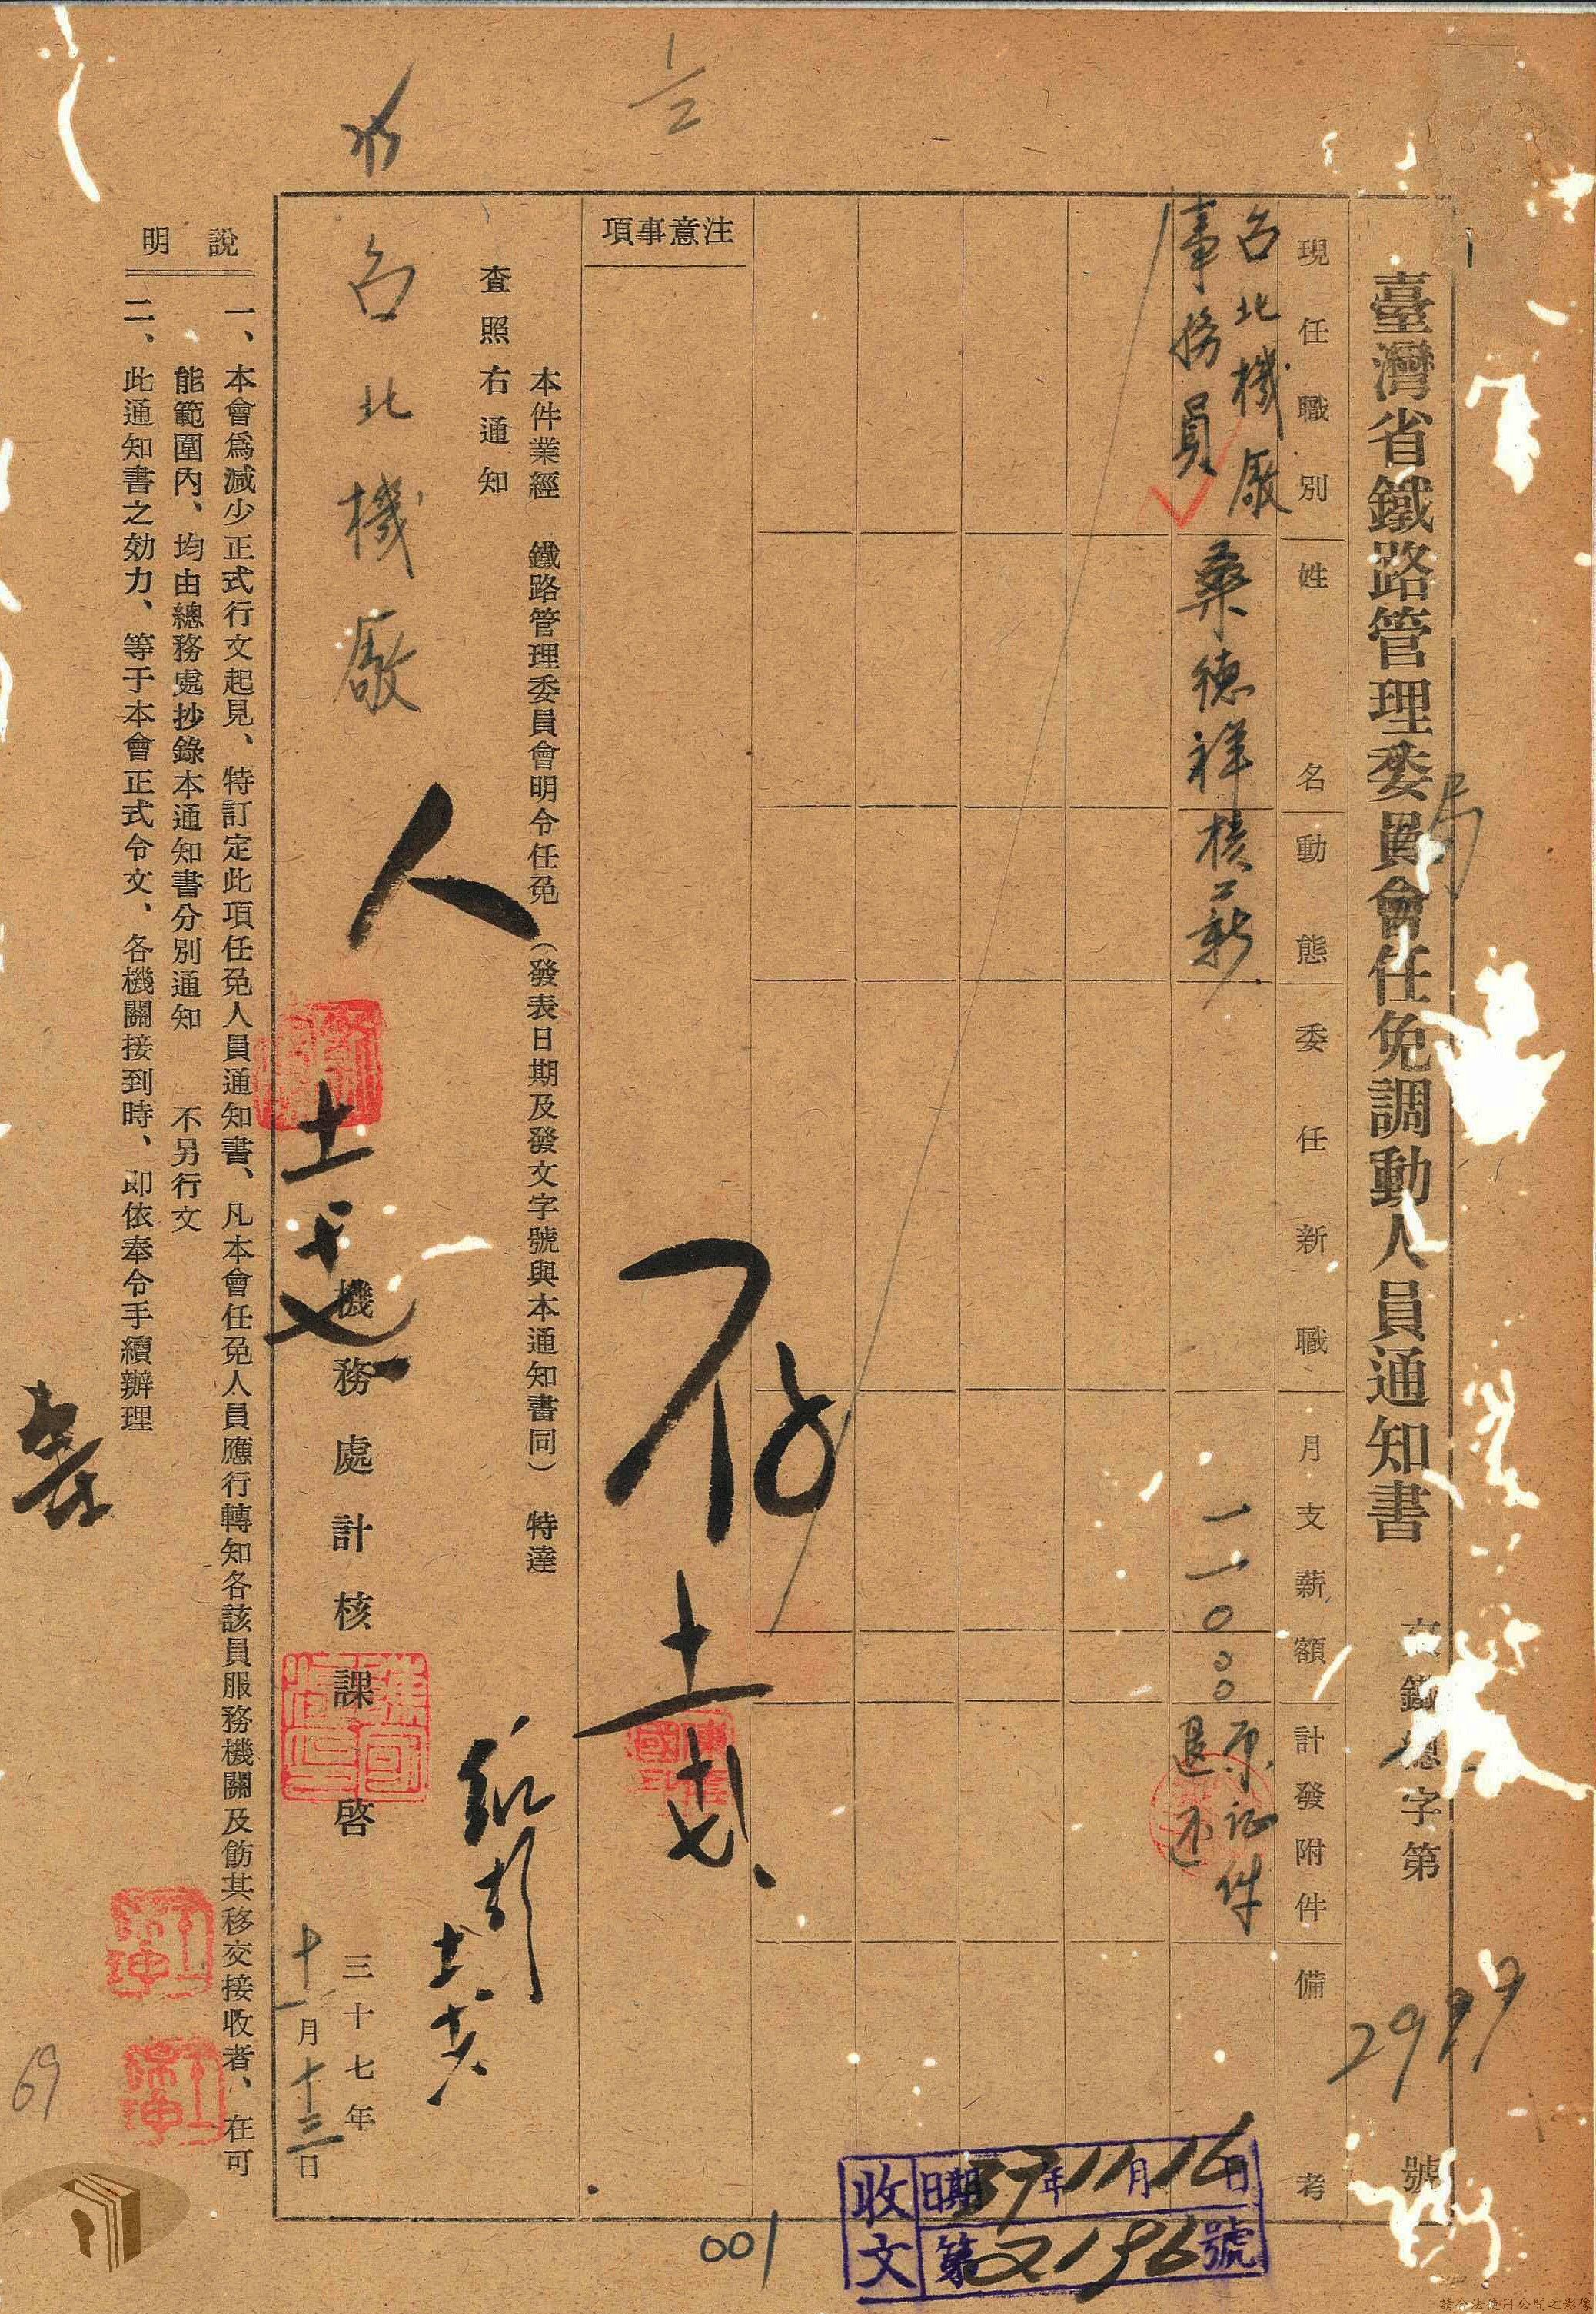 臺灣省鐵路管理委員會任免調動人員通知書
鐵總字第 2997 號
局
現任職別
姓名
動態
委任新職
月支薪額
計發附件
備考
台北機廠
事務員
桑德祥
核薪
一一〇〇〇
原证件
退还
注意事項
存
本件業經 鐵路管理委員會明令任免(發表日期及發文字號與本通知書同) 特達
查照右通知
台北機廠
人
機務處計核課啓
三十七年
十一月十三日
說明
一、本會爲減少正式行文起見、特訂定此項任免人員通知書、凡本會任免人員應行轉知各該員服務機關及飭其移交接收者、在可
能範圍內、均由總務處抄錄本通知書分別通知 不另行文
二、此通知書之効力、等于本會正式令文、各機關接到時、卽依奉令手續辦理
收文
日期 37年11月16日
第 2196 號
001
69
1/2
請合法使用公開之影像